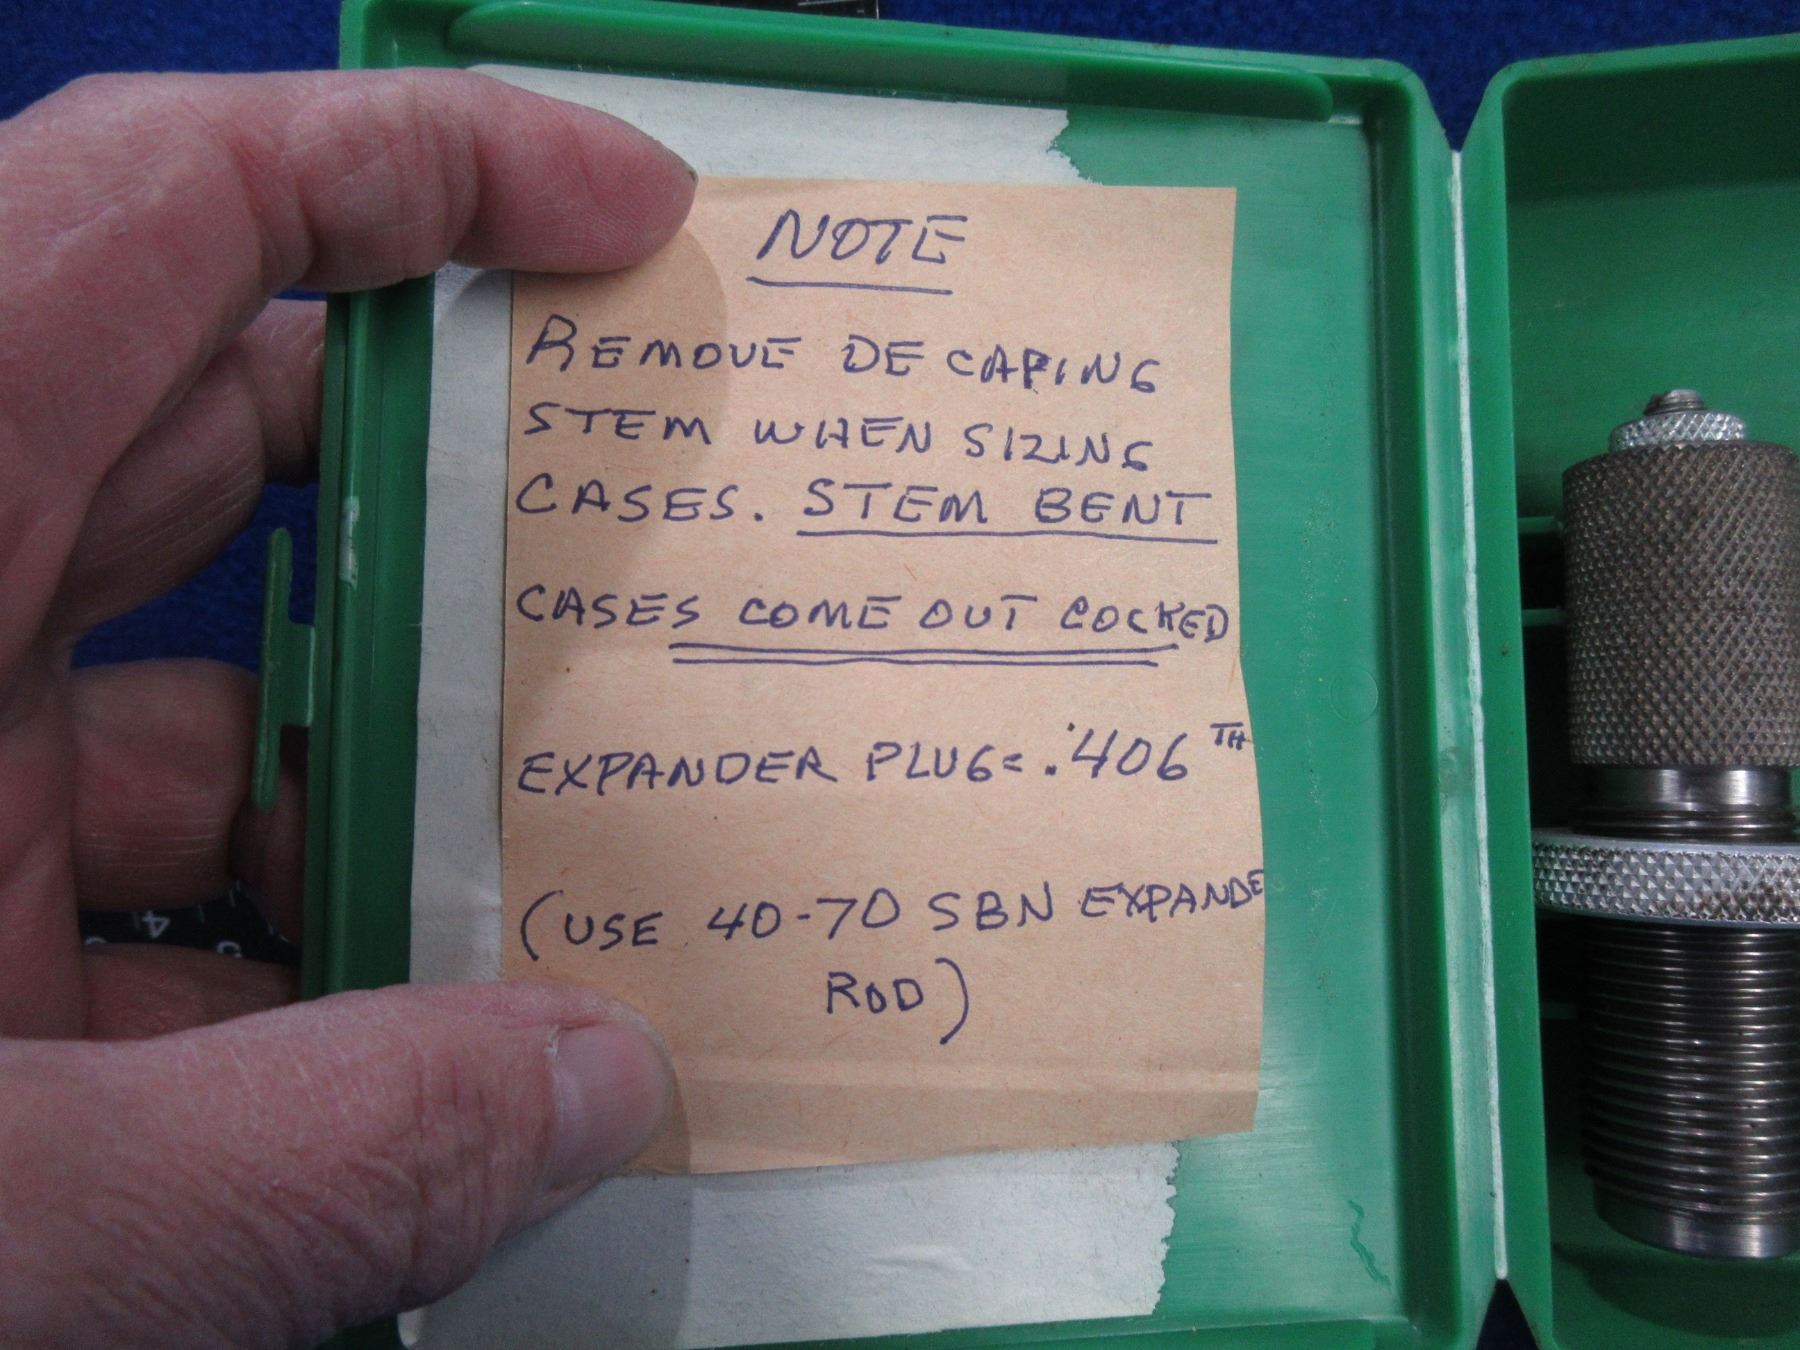 NOTE
REMOVE DE CAPING
STEM WHEN SIZING
CASES. STEM BENT
CASES COME OUT COCKED
EXPANDER PLUG = .406TH
(USE 40-70 SBN EXPANDE
ROD)
4